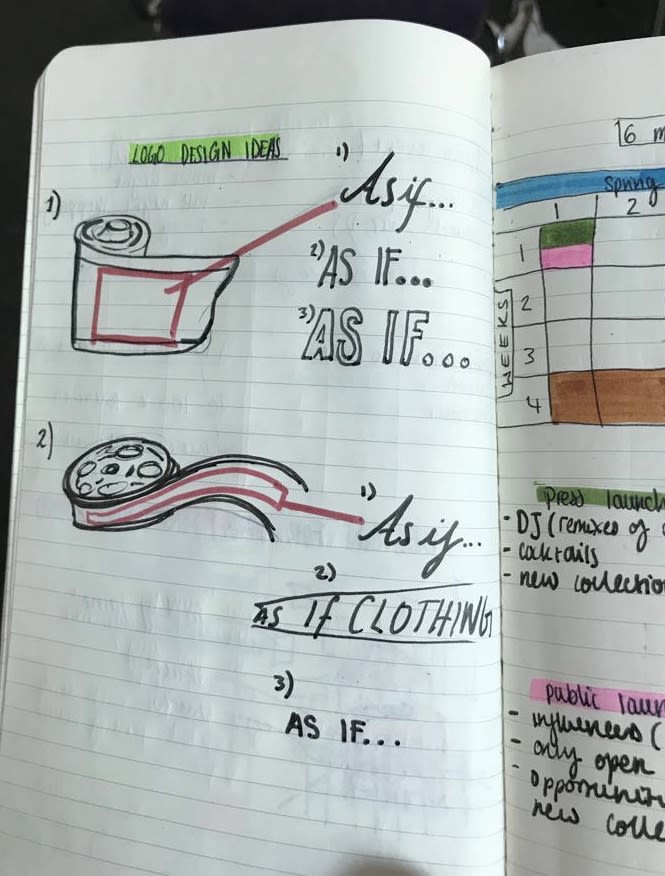 LOGO DESIGN IDEAS
1)
1)
As if...
2) AS IF...
3) AS IF...
2)
1)
As if...
2)
AS If CLOTHING
3)
AS IF...
16 m
Spring
1 2
WEEKS
1
2
3
4
press launch
- DJ (remixes of
- cocktails
- new collection
public laun
- influencers (
- only open
- opportunit
new colle